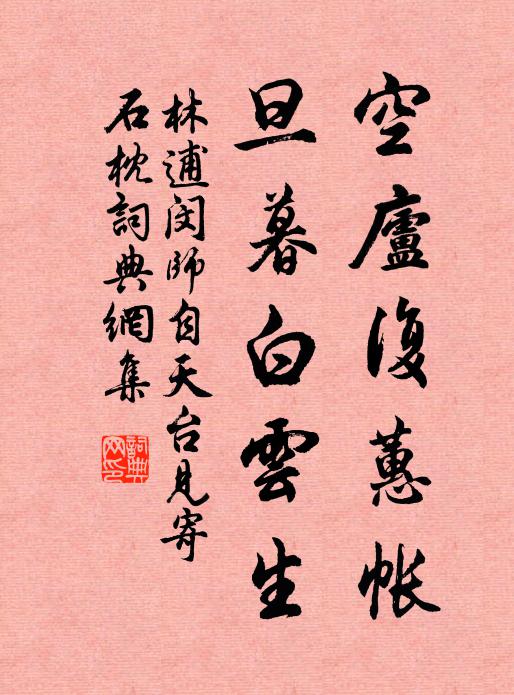 空廬復蕙帳
旦暮白雲生
林逋閔師自天台見寄
石枕詞典網集
詞典网印